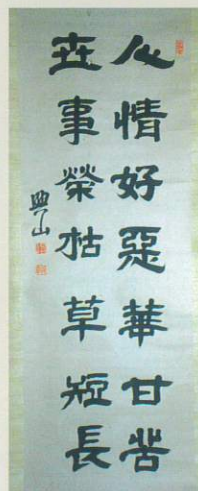 人情好惡華甘苦
世事榮枯草短長